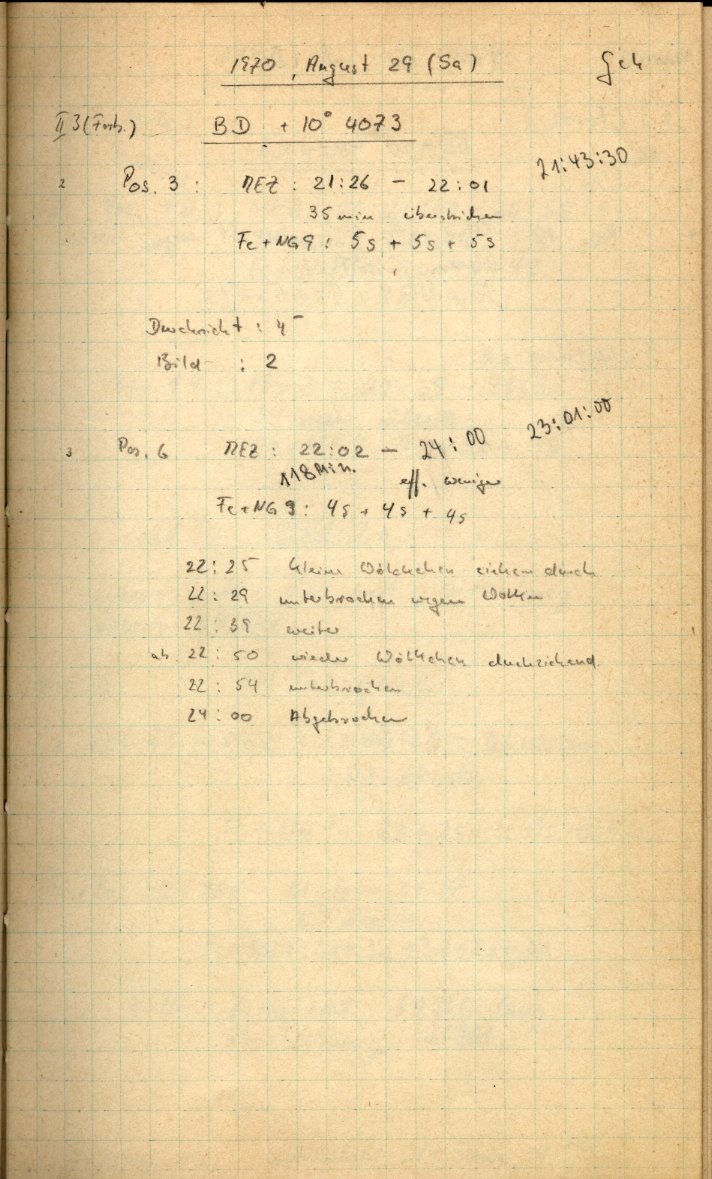 1970, August 29 (Sa) Geh
II 3 (Forts.) BD + 10° 4073
2 Pos. 3 : MEZ : 21:26 – 22:01 21:43:30
35 min überstrichen
Fe+NG9 : 5s + 5s + 5s
Durchsicht : 4⁻
Bild : 2
3 Pos. 6 MEZ : 22:02 – 24:00 23:01:00
118 Min. eff. weniger
Fe+NG9 : 4s + 4s + 4s
22:25 kleine Wölkchen ziehen durch
22:29 unterbrochen wegen Wolken
22:39 weiter
ab 22:50 wieder Wölkchen durchziehend
22:54 unterbrochen
24:00 Abgebrochen